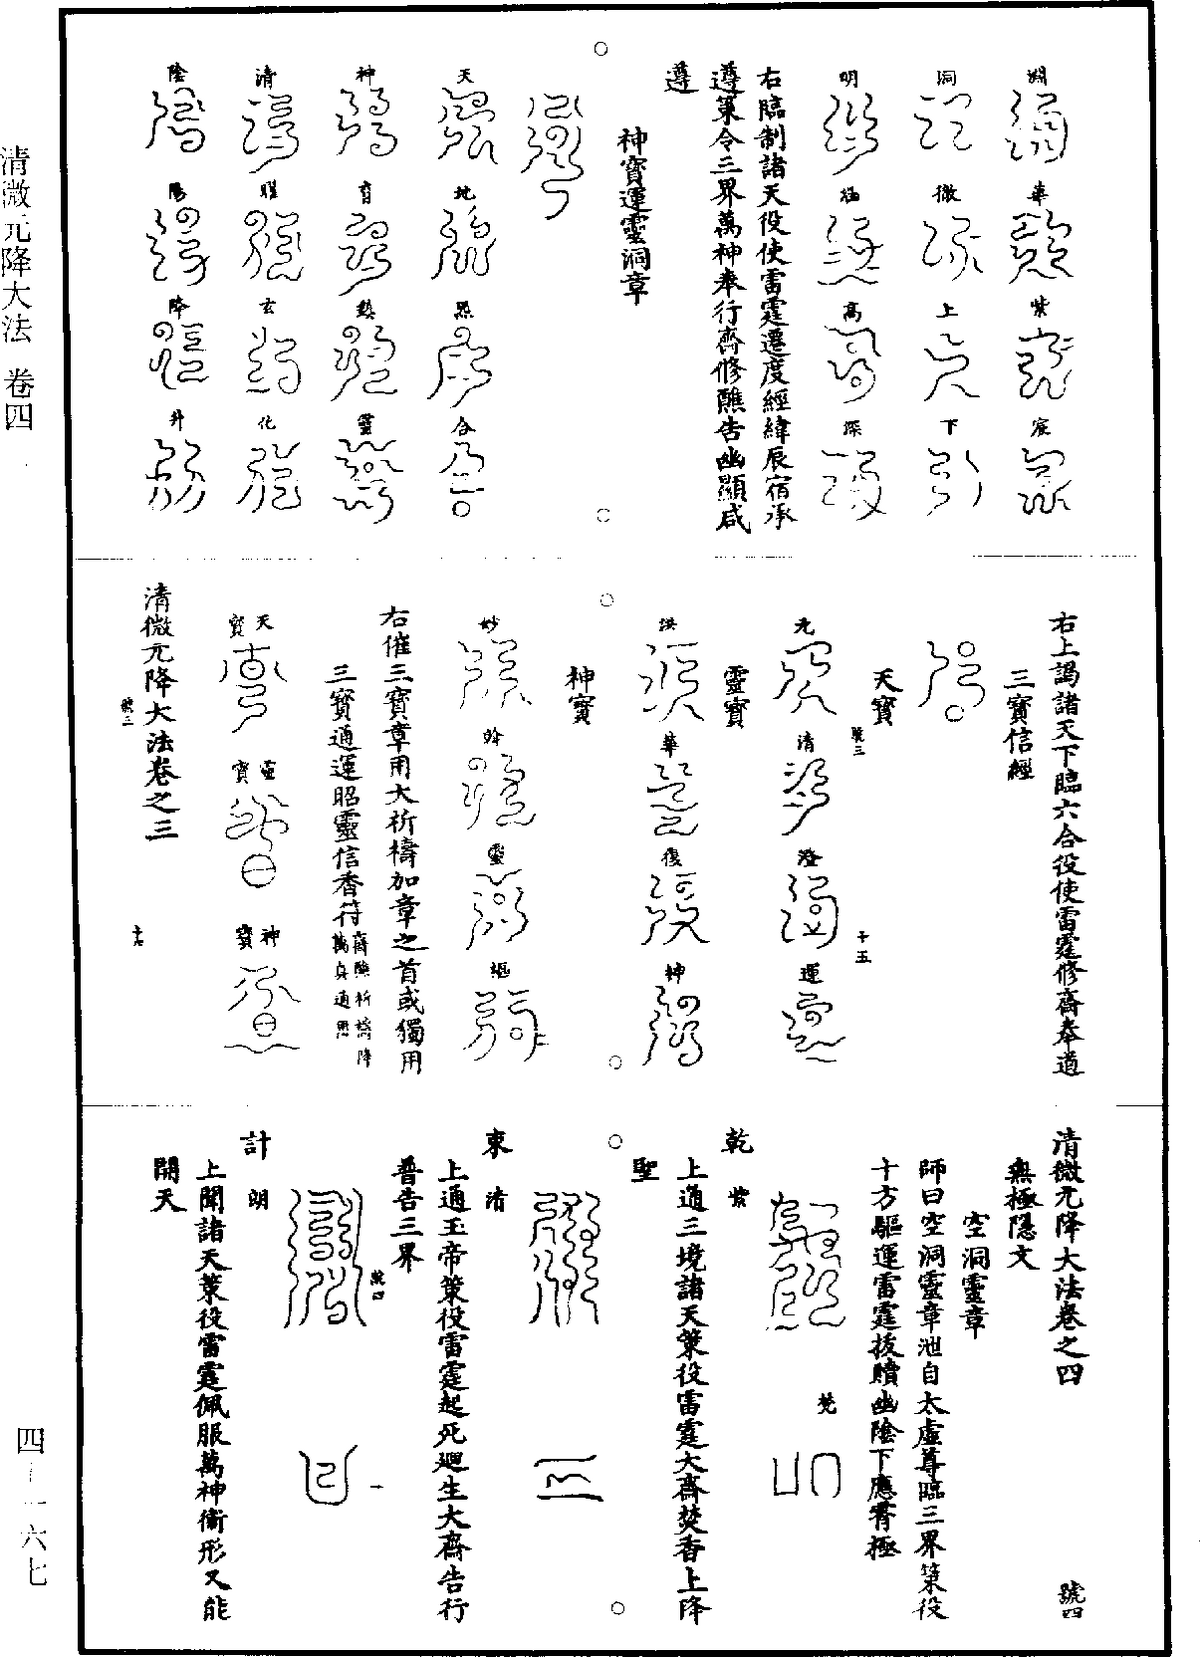 清微元降大法 卷四
淵 華 紫 宸
洞 微 上 下
明 緬 高 深
右臨制諸天役使雷霆遷度經緯辰宿承
遵策令三界萬神奉行齋修醮告幽顯咸
遵
神寶運靈洞章
天 地 炁 合
神 育 鎮 靈
清 腥 玄 化
陰 陽 降 升
右上謁諸天下臨六合役使雷霆修齋奉道
三寶信經
天寶
號三 十五
元 清 澄 運
靈寶
洪 華 復 神
神寶
妙 斡 靈 樞
右催三寶章用大祈禱加章之首或獨用
三寶通運昭靈信香符齋醮祈禱降萬真通思
天寶 靈寶 神寶
清微元降大法卷之三
號三
清微元降大法卷之四 號四
無極隱文
空洞靈章
師曰空洞靈章泄自太虛尊臨三界策役
十方驅運雷霆拔贖幽陰下應霄極
梵
乾 紫
上通三境諸天策役雷霆大齋焚香上降
聖
東 清
上通玉帝策役雷霆起死廻生大齋告行
普告三界
號四 一
計 朗
上聞諸天策役雷霆佩服萬神衛形又能
開天
四一一六七